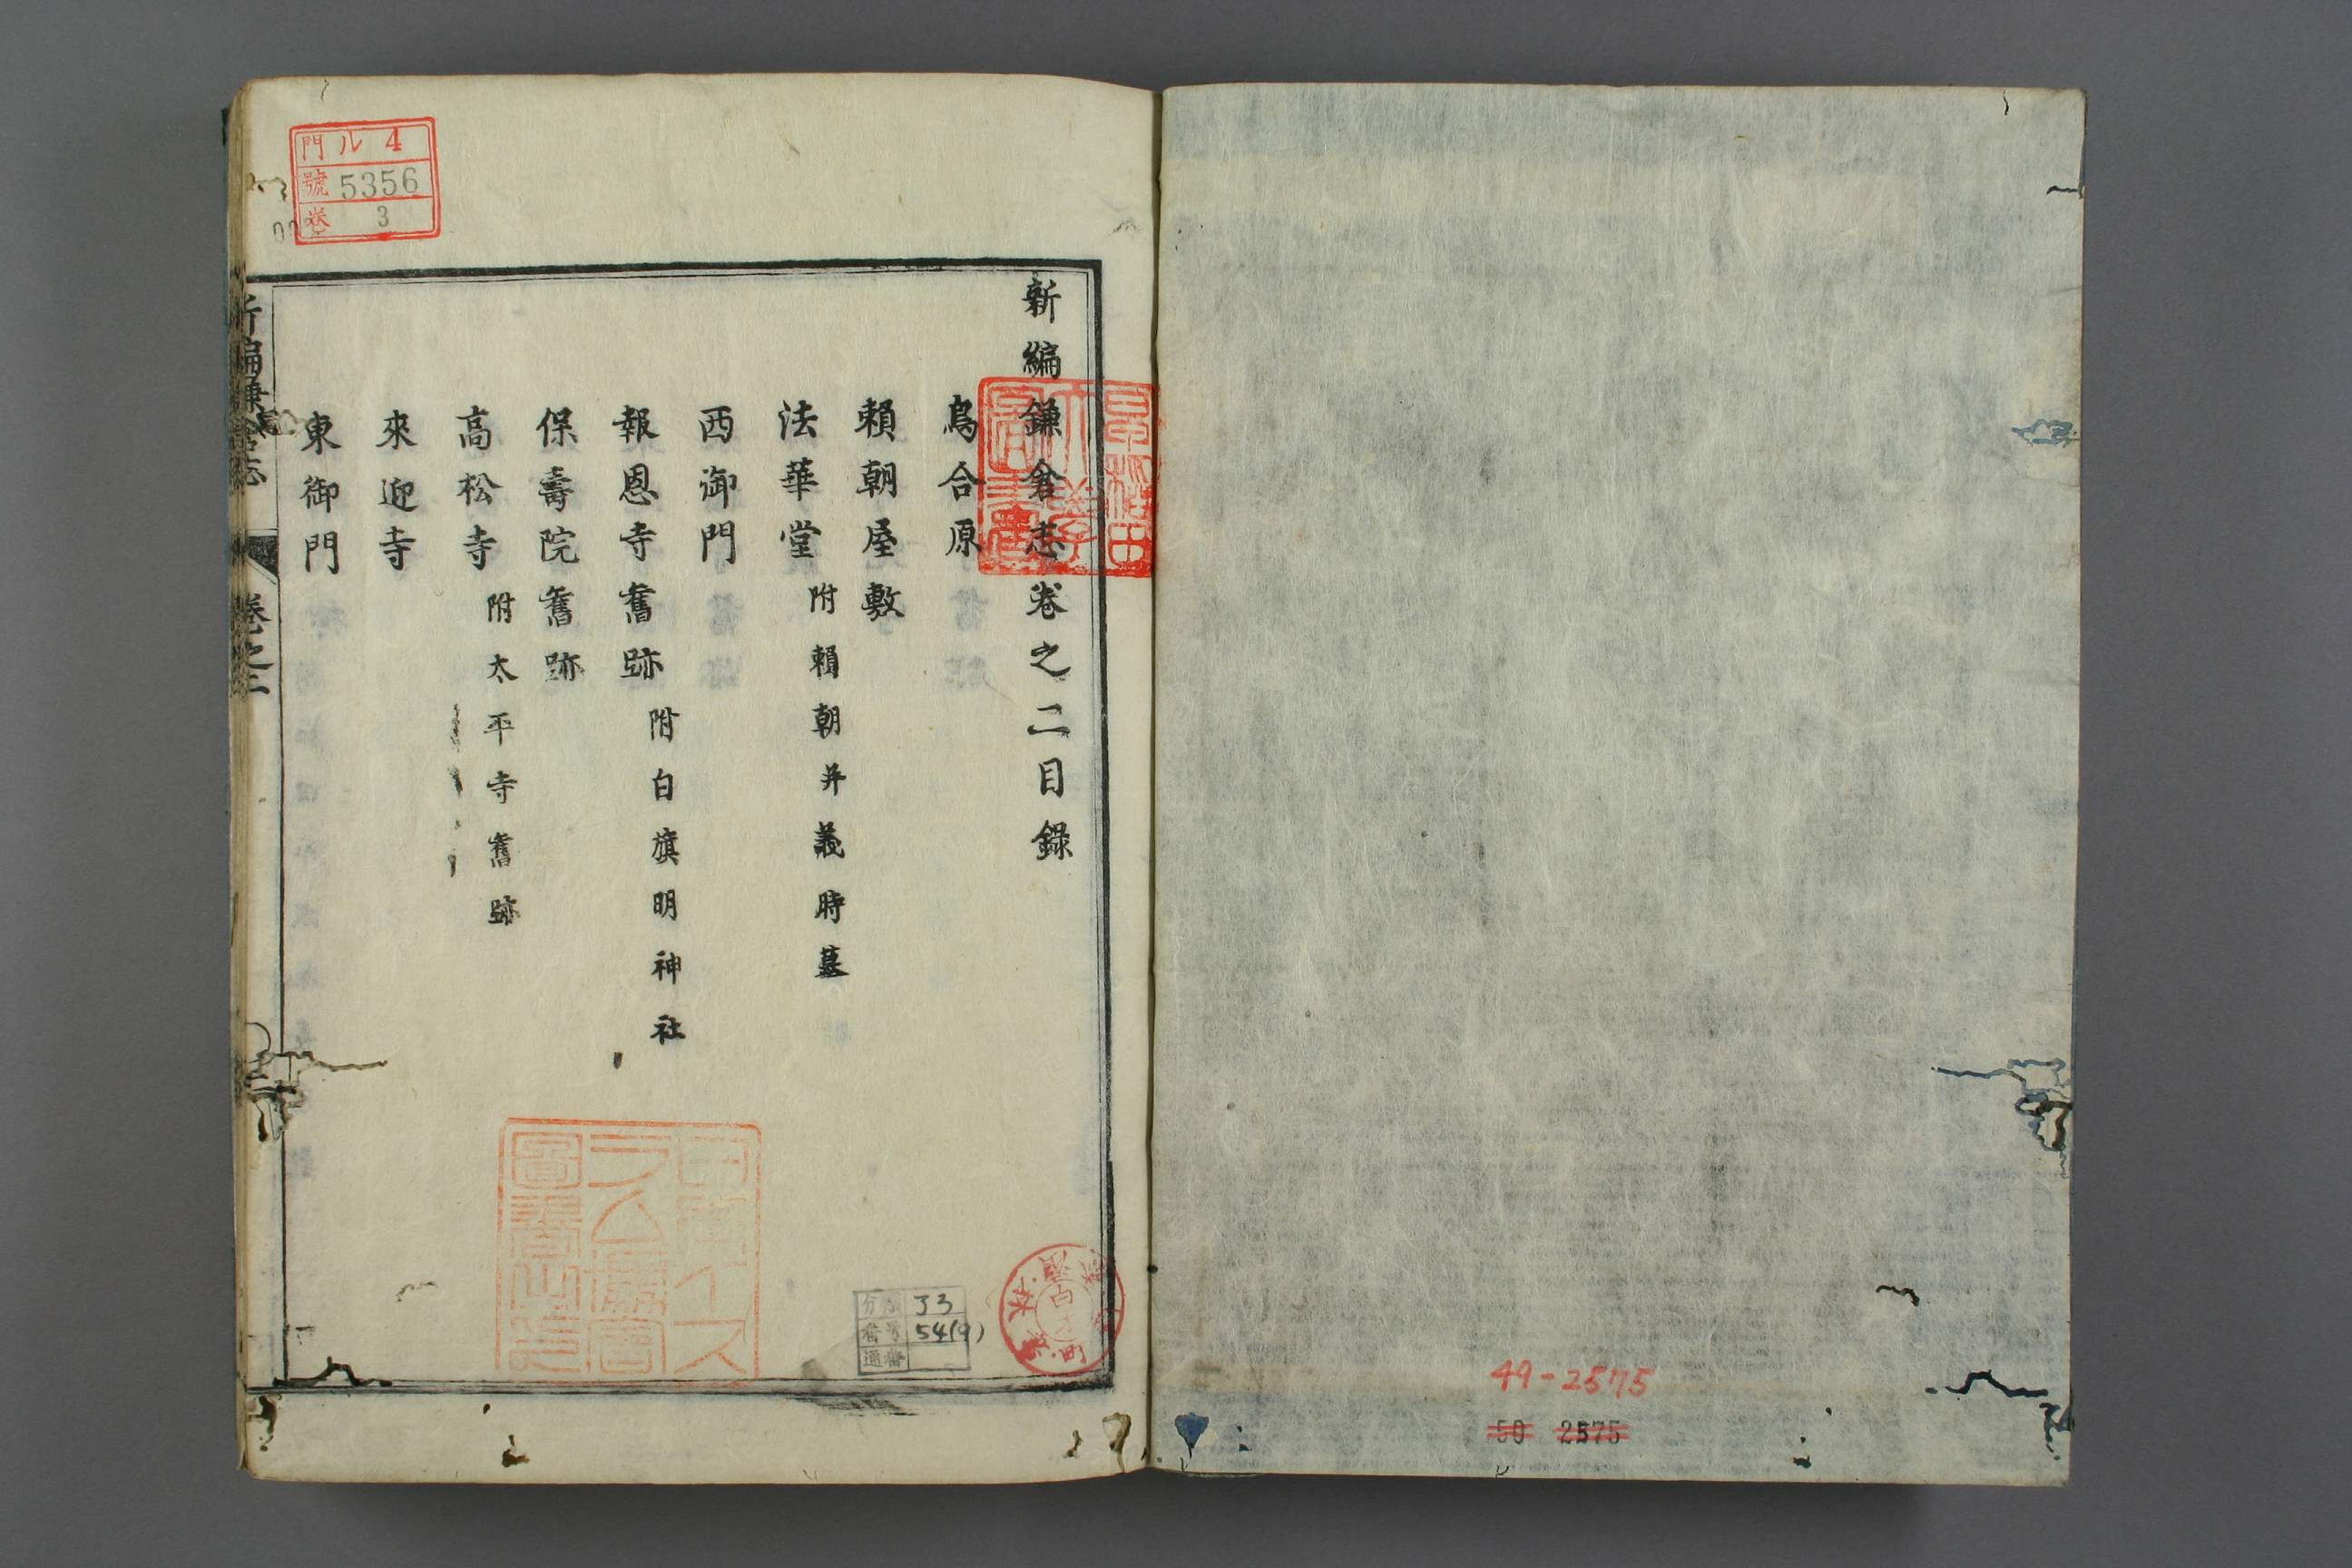 新編鎌倉志卷之二目錄
鳥合原
賴朝屋敷
法華堂 附賴朝并義時墓
西御門
報恩寺舊跡 附白旗明神社
保壽院舊跡
高松寺 附太平寺舊跡
來迎寺
東御門
新編鎌倉志 卷之二
門 ル 4
號 5356
卷 3
分類 J3
番号 54(9)
通番
49-2575
50 2575